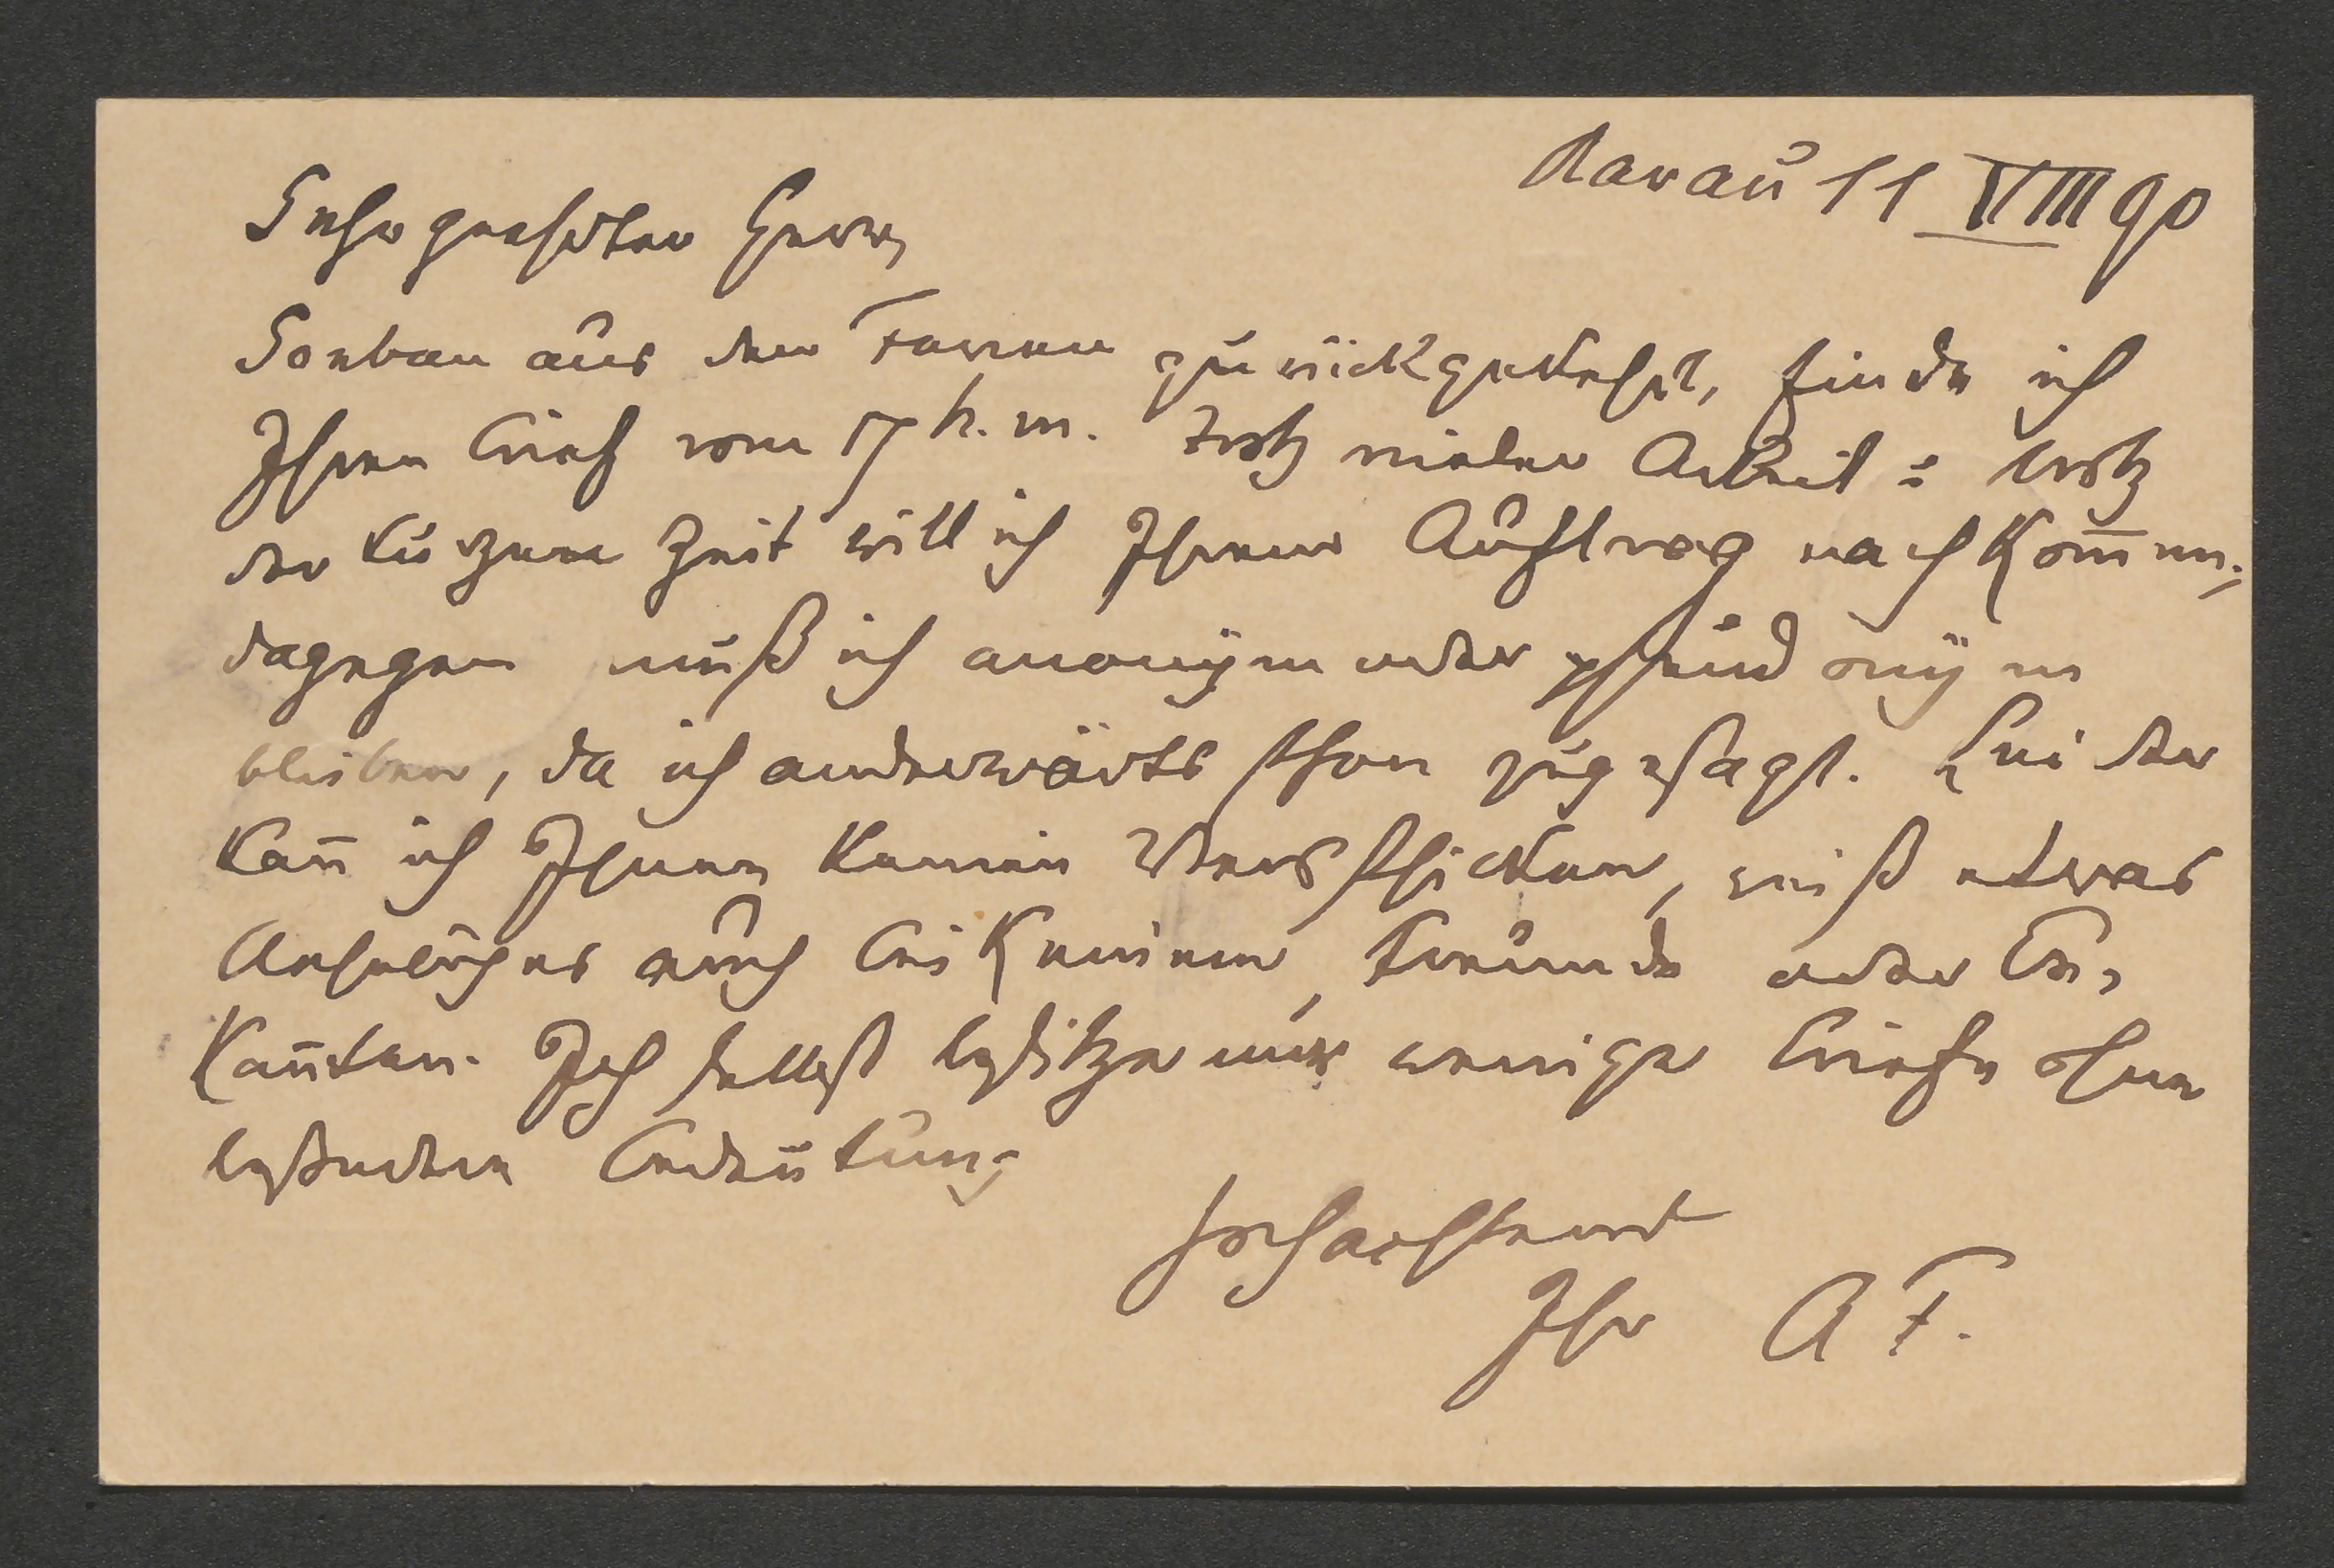 Aarau 11 VIII 90
Sehr geehrter Herr,
Soeben aus den Ferien zurückgekehrt, finde ich
Ihren Brief vom 17 h. m. Trotz vieler Arbeit & trotz
der kurzen Zeit will ich Ihrem Auftrag nachkom̅en;
dagegen muß ich anonÿm oder pseudonÿm
bleiben, da ich anderwärts schon zugesagt. Leider
kan̅ ich Ihnen kein schicken, weiß etwas
auch bei keinem Freunde oder Be-
kan̅ten. Ich selbst besitze nur wenige Briefe ohne
besondere Bedeutung
Hochachtend
Ihr A F.